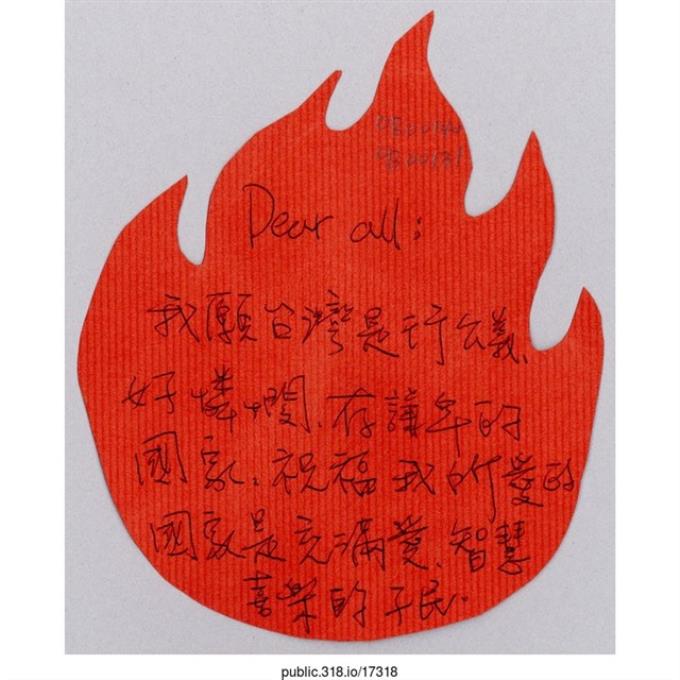 Dear all:
我願台灣是行公義、
好憐憫、存謙卑的
國家。祝福我所愛的
國家是充滿愛、智慧
喜樂的子民.
public.318.io/17318